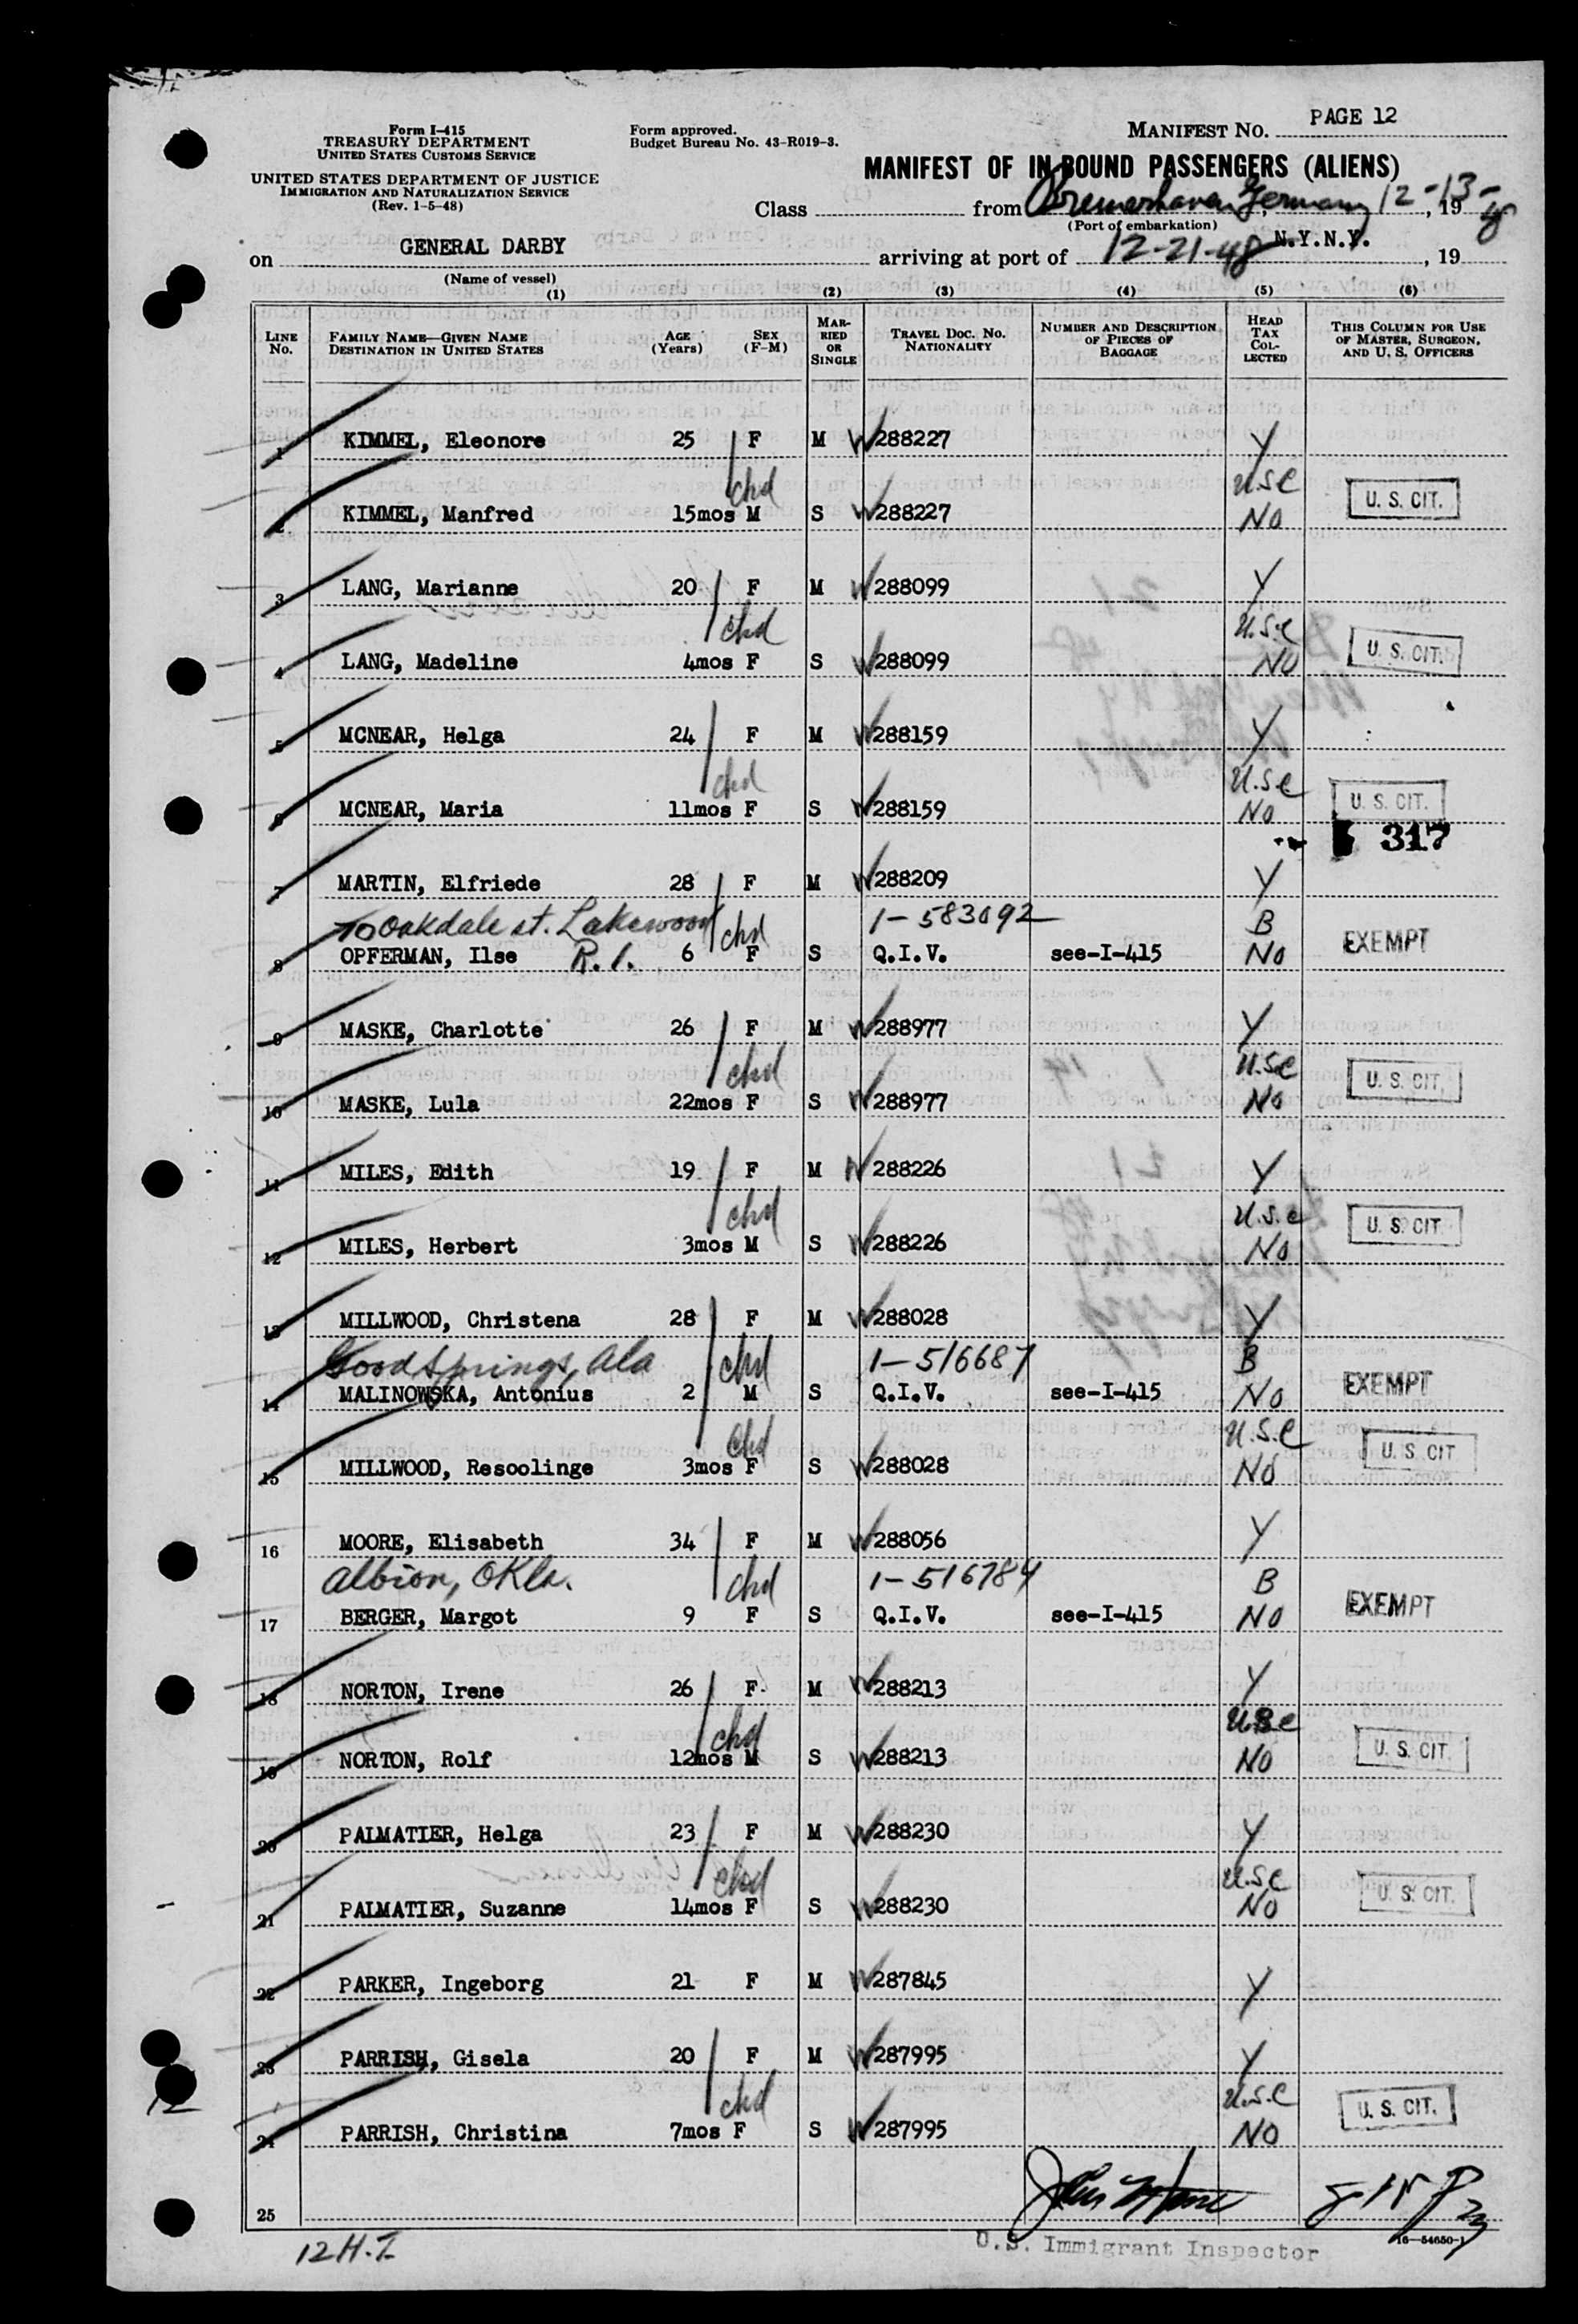 PAGE 12
Form I-415
TREASURY DEPARTMENT
UNITED STATES CUSTOMS SERVICE
UNITED STATES DEPARTMENT OF JUSTICE
IMMIGRATION AND NATURALIZATION SERVICE
(Rev. 1-5-48)
Form approved.
Budget Bureau No. 43-R019-3.
MANIFEST NO.
MANIFEST OF IN-BOUND PASSENGERS (ALIENS)
Class from Bremerhaven, Germany 12-13-, 19 48
(Port of embarkation)
on GENERAL DARBY arriving at port of 12-21-48 N.Y.N.Y. , 19
(Name of vessel)
(1) (2) (3) (4) (5) (6)
LINE No. FAMILY NAME—GIVEN NAME DESTINATION IN UNITED STATES AGE (Years) SEX (F-M) MARRIED OR SINGLE TRAVEL DOC. NO. NATIONALITY NUMBER AND DESCRIPTION OF PIECES OF BAGGAGE HEAD TAX COLLECTED THIS COLUMN FOR USE OF MASTER, SURGEON, AND U. S. OFFICERS
1 KIMMEL, Eleonore 25 F M 288227 Y
chd U.S.C
2 KIMMEL, Manfred 15mos M S 288227 NO U. S. CIT.
3 LANG, Marianne 20 F M 288099 Y
chd U.S.C
4 LANG, Madeline 4mos F S 288099 NO U. S. CIT.
5 MCNEAR, Helga 24 F M 288159 Y
chd U.S.C
6 MCNEAR, Maria 11mos F S 288159 NO U. S. CIT.
317
7 MARTIN, Elfriede 28 F M 288209 Y
Oakdale st. Lakewood chd 1-583092 B
8 OPFERMAN, Ilse R.I. 6 F S Q.I.V. see-I-415 NO EXEMPT
9 MASKE, Charlotte 26 F M 288977 Y
chd U.S.C
10 MASKE, Lula 22mos F S 288977 NO U. S. CIT.
11 MILES, Edith 19 F M 288226 Y
chd U.S.C
12 MILES, Herbert 3mos M S 288226 NO U. S. CIT.
13 MILLWOOD, Christena 28 F M 288028 Y
Goodsprings, Ala chd 1-516687 B
14 MALINOWSKA, Antonius 2 M S Q.I.V. see-I-415 NO EXEMPT
chd U.S.C
15 MILLWOOD, Resoolinge 3mos F S 288028 NO U. S. CIT
16 MOORE, Elisabeth 34 F M 288056 Y
Albion, Okla. chd 1-516784 B
17 BERGER, Margot 9 F S Q.I.V. see-I-415 NO EXEMPT
18 NORTON, Irene 26 F M 288213 Y
chd U.S.C
19 NORTON, Rolf 12mos M S 288213 NO U. S. CIT.
20 PALMATIER, Helga 23 F M 288230 Y
chd U.S.C
21 PALMATIER, Suzanne 14mos F S 288230 NO U. S. CIT.
22 PARKER, Ingeborg 21 F M 287845 Y
23 PARRISH, Gisela 20 F M 287995 Y
chd U.S.C
24 PARRISH, Christina 7mos F S 287995 NO U. S. CIT.
25
12
12 H.T.
U.S. Immigrant Inspector
16—54650-1